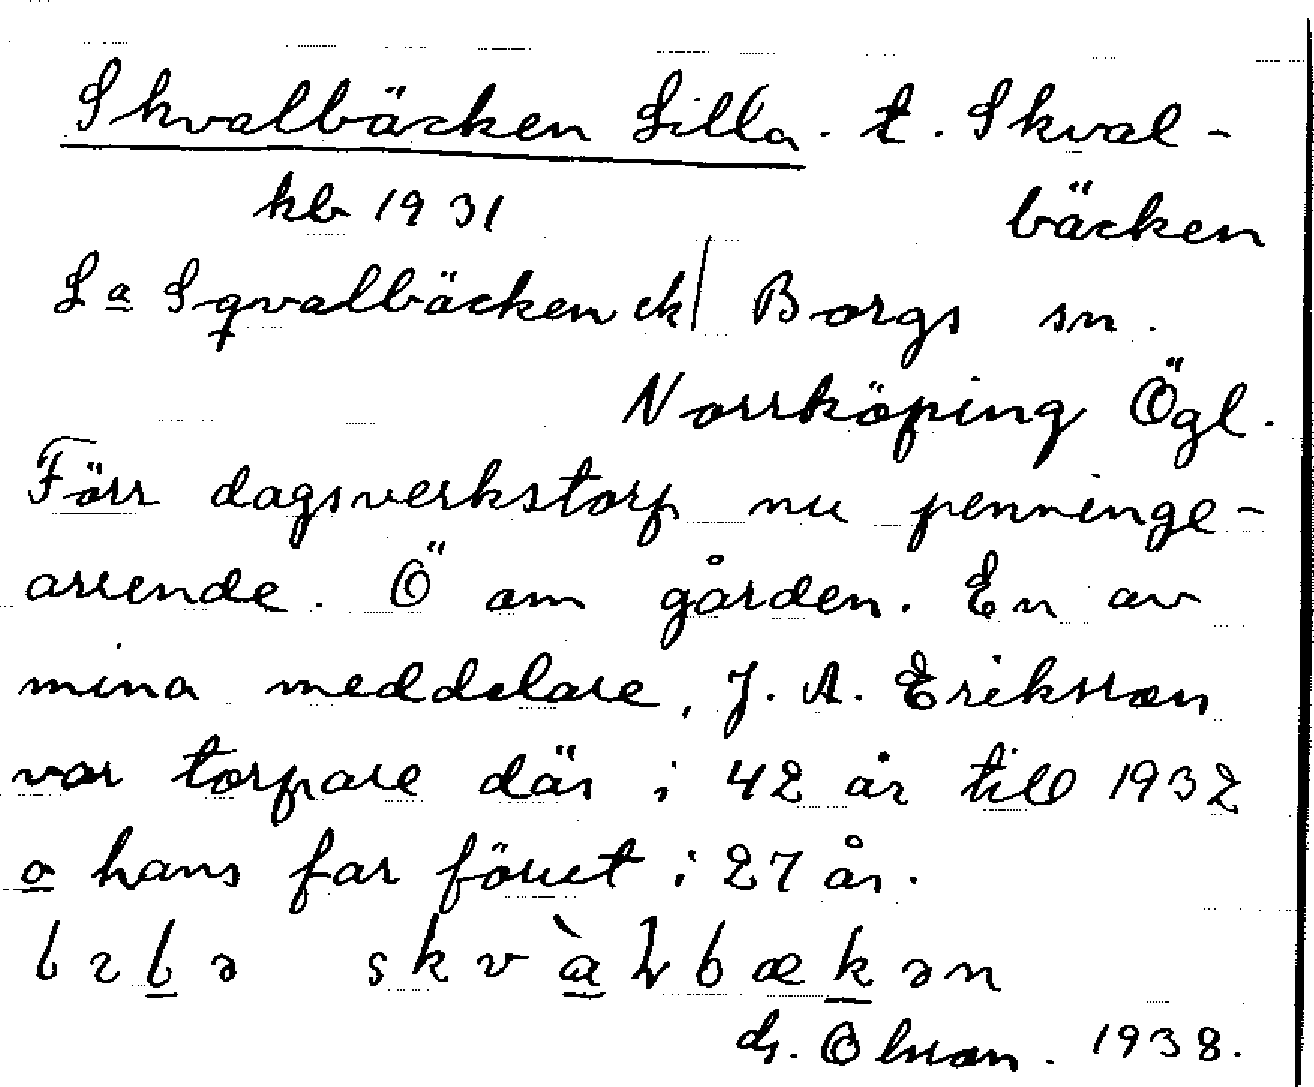 Skvalbäcken Lilla. t. Skval-
kb 1931 bäcken
La Sqvalbäcken ek/ Borgs sn.
Norrköping Ögl.
Förr dagsverkstorp nu penninge-
arrende. Ö om gården. En av
mina meddelare, J. A. Eriksson
var torpare där i 42 år till 1932
o hans far förut i 27 år.
skv
Olsson. 1938.